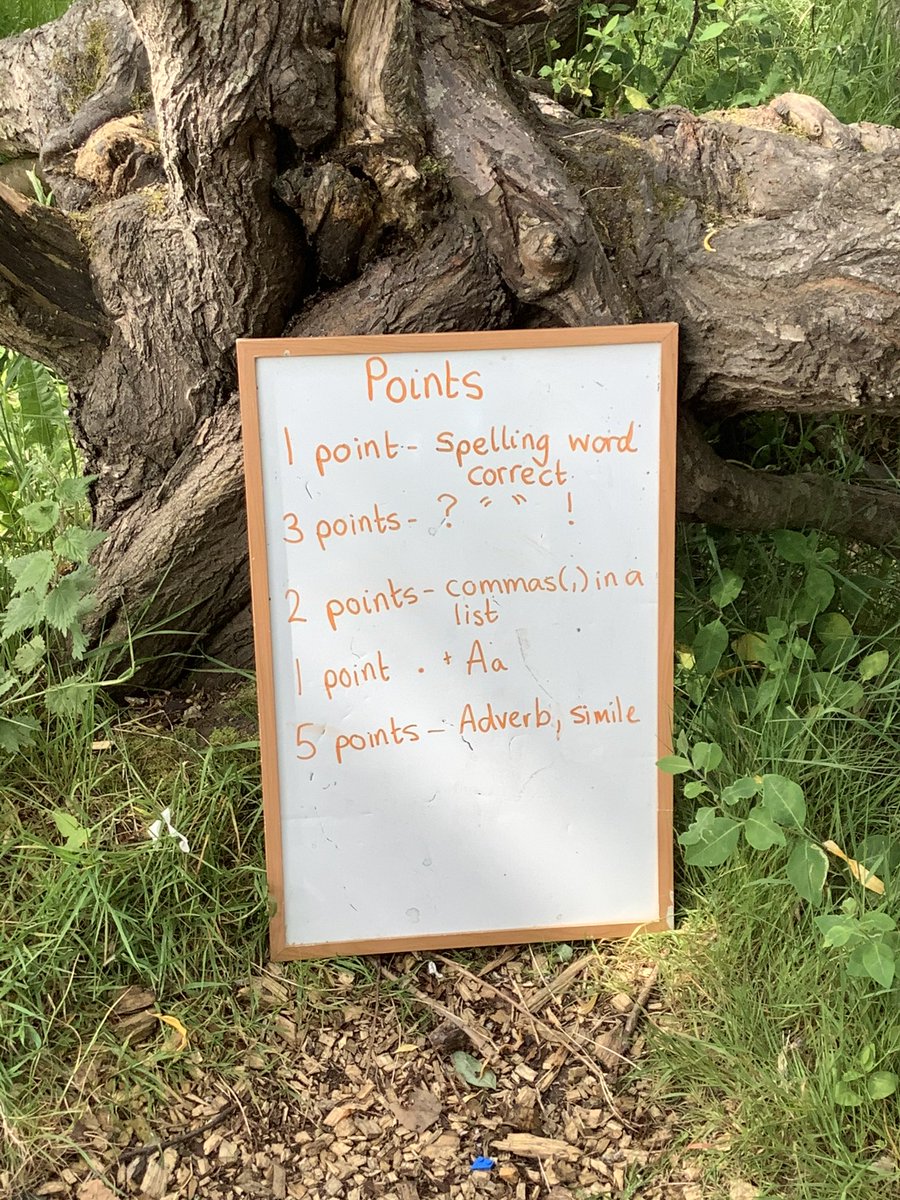 Points
1 point - spelling word
correct
3 points - ? “ ” !
2 points - commas(,) in a
list
1 point . + Aa
5 points - Adverb, simile